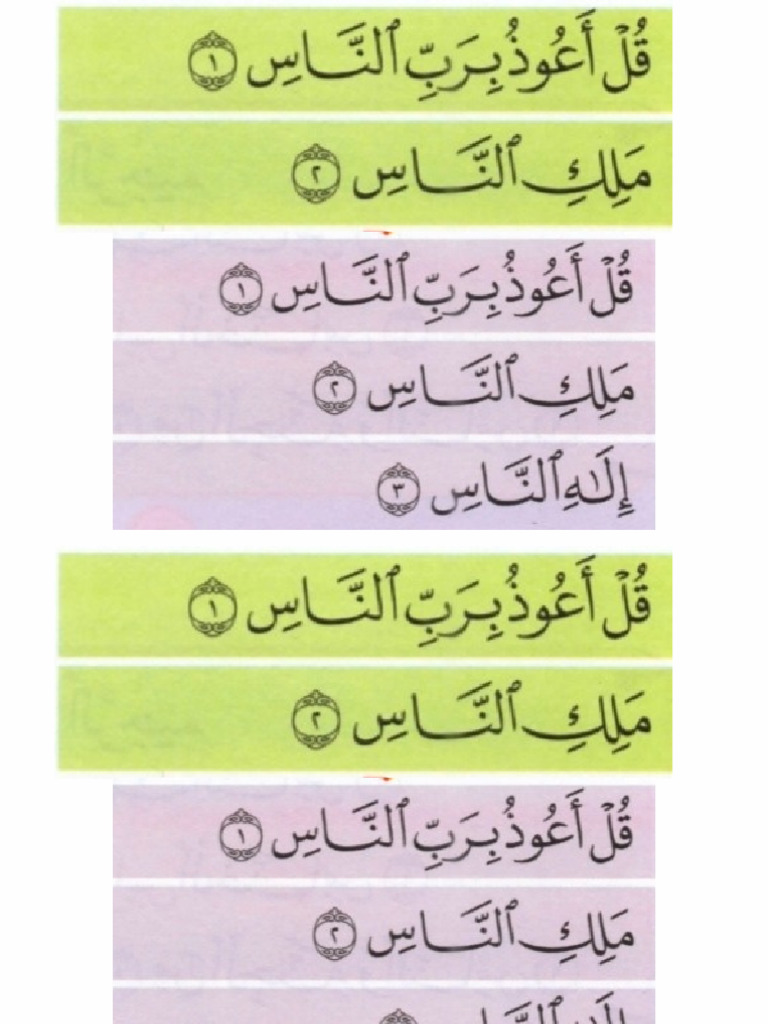 قُلْ أَعُوذُ بِرَبِّ ٱلنَّاسِ ١
مَلِكِ ٱلنَّاسِ ٢
قُلْ أَعُوذُ بِرَبِّ ٱلنَّاسِ ١
مَلِكِ ٱلنَّاسِ ٢
إِلَـٰهِ ٱلنَّاسِ ٣
قُلْ أَعُوذُ بِرَبِّ ٱلنَّاسِ ١
مَلِكِ ٱلنَّاسِ ٢
قُلْ أَعُوذُ بِرَبِّ ٱلنَّاسِ ١
مَلِكِ ٱلنَّاسِ ٢